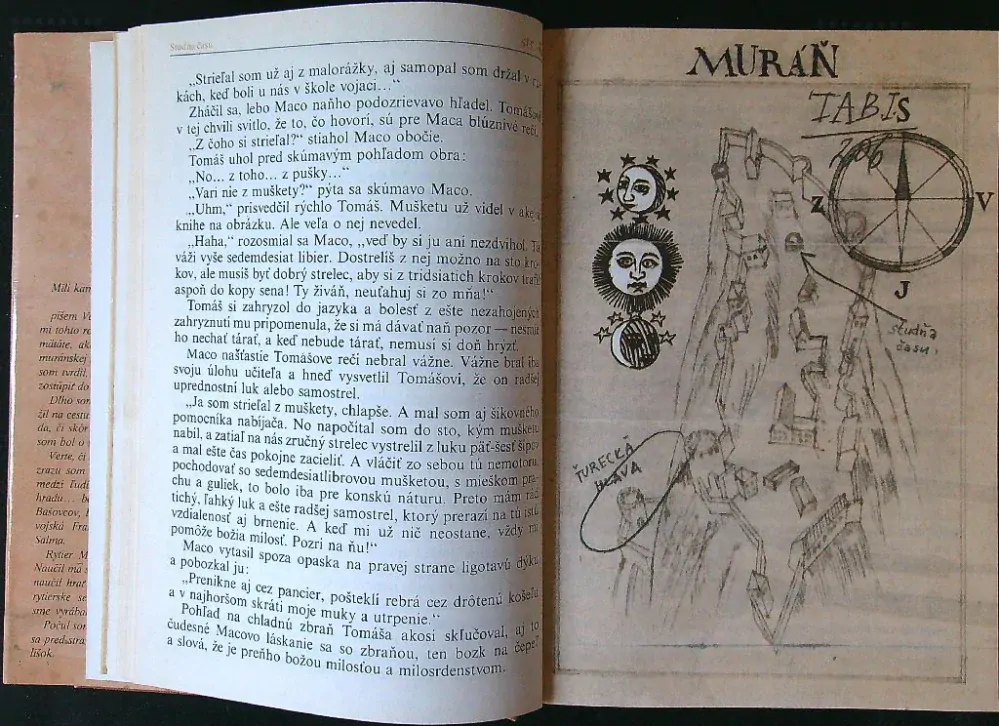 Milí kam
píšem V
mi tohto ro
mätáte, ak
muránskej
som tvrdil,
zostúpiť do
Dlho son
žil na cestu
da, či skôr
som bol o
Verte, či
zrazu som
medzi ľuď
hradu... b
Bašovcov, 
vojská Fra
Salma.
Rytier M
Naučil ma s
naučil hrať
rytierske se
sme vyrába
Počul som
sa predstra
líšok.
Studňa času
str.
„Strieľal som už aj z malorážky, aj samopal som držal v ru-
kách, keď boli u nás v škole vojaci...“
Zháčil sa, lebo Maco naňho podozrievavo hľadel. Tomášovi
v tej chvíli svitlo, že to, čo hovorí, sú pre Maca blúznivé reči.
„Z čoho si strieľal?“ stiahol Maco obočie.
Tomáš uhol pred skúmavým pohľadom obra:
„No... z toho... z pušky...“
„Vari nie z muškety?“ pýta sa skúmavo Maco.
„Uhm,“ prisvedčil rýchlo Tomáš. Mušketu už videl v akejsi
knihe na obrázku. Ale veľa o nej nevedel.
„Haha,“ rozosmial sa Maco, „veď by si ju ani nezdvihol. Tá
váži vyše sedemdesiat libier. Dostrelíš z nej možno na sto kro-
kov, ale musíš byť dobrý strelec, aby si z tridsiatich krokov trafil
aspoň do kopy sena! Ty živáň, neuťahuj si zo mňa!“
Tomáš si zahryzol do jazyka a bolesť z ešte nezahojených
zahryznutí mu pripomenula, že si má dávať naň pozor — nesmie
ho nechať tárať, a keď nebude tárať, nemusí si doň hrýzť.
Maco našťastie Tomášove reči nebral vážne. Vážne bral iba
svoju úlohu učiteľa a hneď vysvetlil Tomášovi, že on radšej
uprednostní luk alebo samostrel.
„Ja som strieľal z muškety, chlapše. A mal som aj šikovného
pomocníka nabíjača. No napočítal som do sto, kým mušketu
nabil, a zatiaľ na nás zručný strelec vystrelil z luku päť-šesť šípov
a mal ešte čas pokojne zacieliť. A vláčiť zo sebou tú nemotoru,
pochodovať so sedemdesiatlibrovou mušketou, s mieškom pra-
chu a guliek, to bolo iba pre konskú náturu. Preto mám rád
tichý, ľahký luk a ešte radšej samostrel, ktorý prerazí na tú istú
vzdialenosť aj brnenie. A keď mi už nič neostane, vždy mi
pomôže božia milosť. Pozri na ňu!“
Maco vytasil spoza opaska na pravej strane ligotavú dýku
a pobozkal ju:
„Prenikne aj cez pancier, pošteklí rebrá cez drôtenú košeľu
a v najhoršom skráti moje muky a utrpenie.“
Pohľad na chladnú zbraň Tomáša akosi skľučoval, aj to
čudesné Macovo láskanie sa so zbraňou, ten bozk na čepeľ
a slová, že je preňho božou milosťou a milosrdenstvom.
MURÁŇ
TAB.IS
206
Z
V
J
studňa
času
ŤURECKÁ
HLAVA